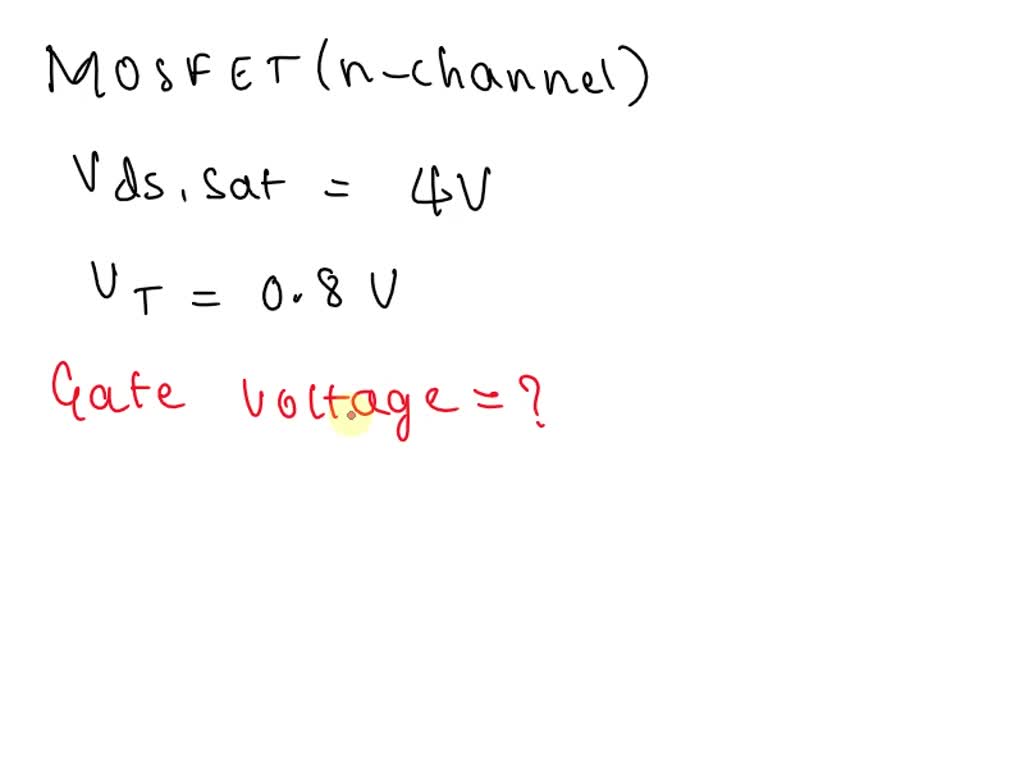 MOSFET (n-channel)
Vds, sat = 4V
VT = 0.8 V
Gate voltage = ?